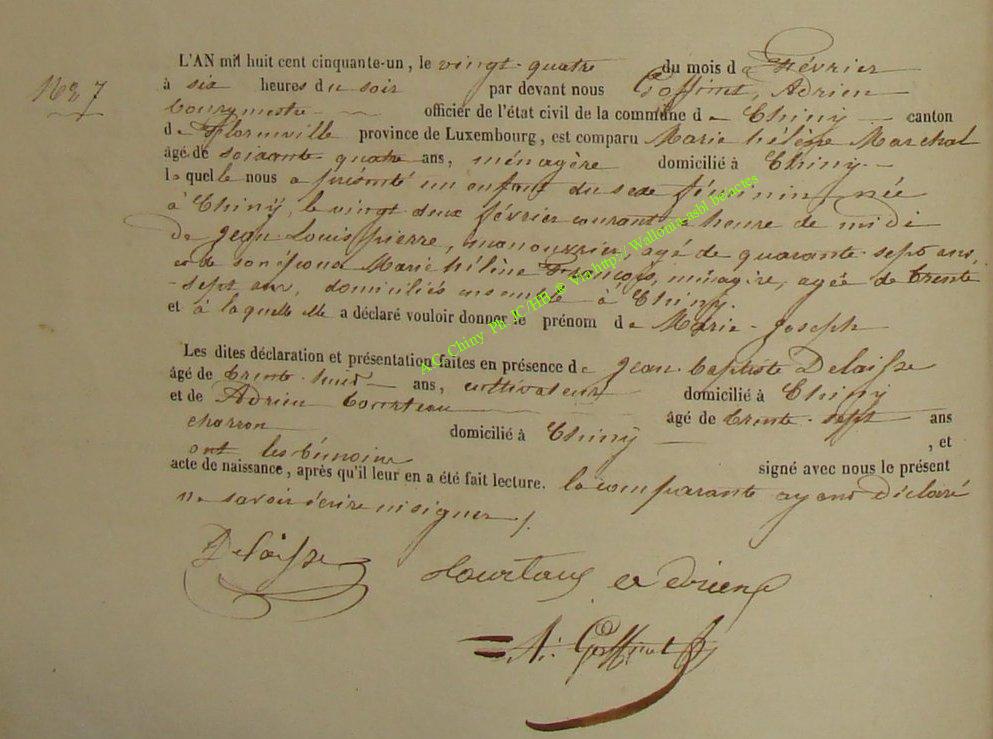 N° 7
L'AN mil huit cent cinquante-un, le vingt-quatre du mois de Février
à six heures du soir par devant nous Goffint, Adrien
bourgmestre officier de l'état civil de la commune de Chiny canton
de Florenville province de Luxembourg, est comparu Marie hélène Marchal
âgé de soixante quatre ans, ménagère domicilié à Chiny
laquelle nous a présenté un enfant du sexe féminin, née
à Chiny, le vingt deux février courant à heure de midi
de Jean Louis pierre, manouvrier, agé de quarante sept ans,
et de son épouse Marie hélène François, ménagère, agée de trente
-sept ans, domiciliés ensemble à Chiny.
et à laquelle elle a déclaré vouloir donner le prénom de Marie-Joseph
Les dites déclaration et présentation faites en présence de Jean baptiste Delaisse
âgé de trente-huit ans, cultivateur domicilié à Chiny
et de Adrien ans âgé de trente-sept ans
charron domicilié à Chiny , et
ont les témoins signé avec nous le présent
acte de naissance, après qu'il leur en a été fait lecture. la comparante ayant déclaré
ne savoir écrire ni signer /.
Delaisse
A. Goffint
A.C. Chiny Ph JC/HB @ Via http://Wallonia-asbl.be/actes